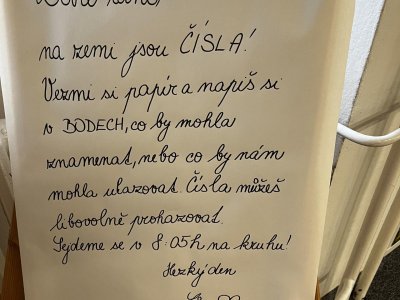 na zemi jsou ČÍSLA!
Vezmi si papír a napiš si
v BODECH, co by mohla
znamenat, nebo co by nám
mohla ukazovat. Čísla můžeš
libovolně prohazovat.
Sejdeme se v 8:05h na kruhu!
Hezký den